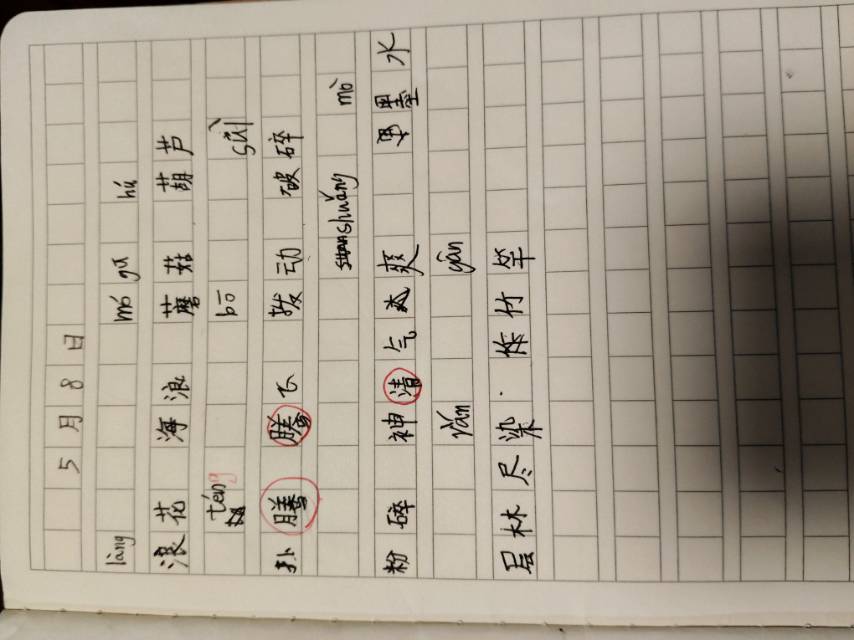 5月8日
làng mó gū hú
浪花 海浪 蘑菇 葫芦
téng bō suì
扑腾 腾飞 拨动 破碎
shuǎng mò
粉碎 神清气爽 墨水
rǎn gān
层林尽染 修竹竿